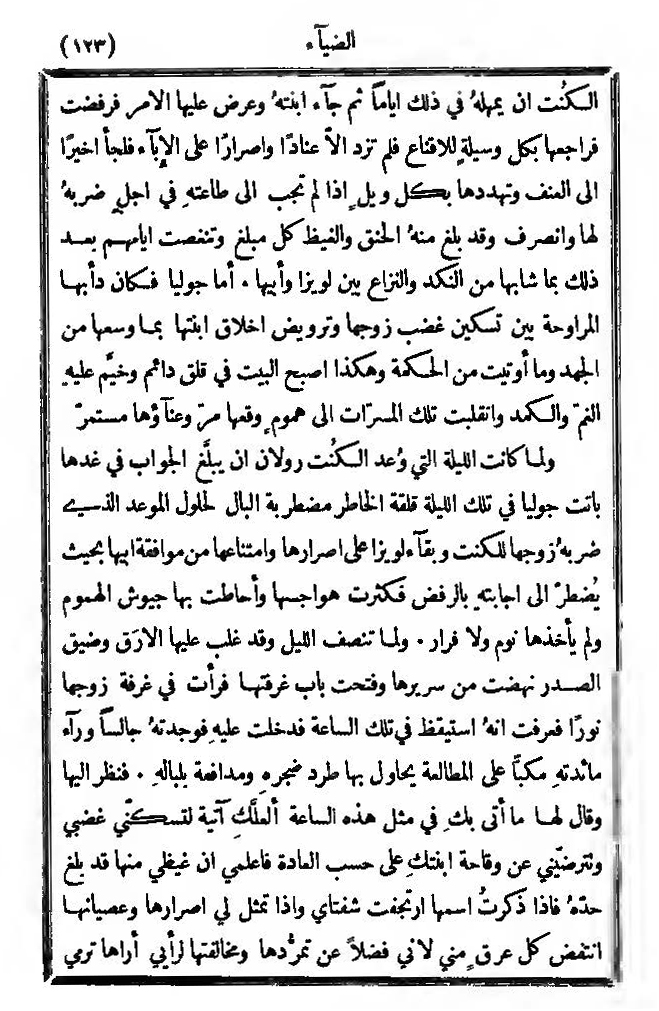 الضيآء
(١٢٣)
الكُنت ان يمهلهُ في ذلك اياماً ثم جآء ابنتهُ وعرض عليها الامر فرفضت
فراجعها بكل وسيلةٍ للاقناع فلم تزد الاّ عنادًا واصرارًا على الإبآء فلجأ اخيرًا
الى العنف وتهددها بكل ويلٍ اذا لم تجب الى طاعتهِ في اجلٍ ضربهُ
لها وانصرف وقد بلغ منهُ الحنق والغيظ كل مبلغ وتنغصت ايامهم بعد
ذلك بما شابها من النكد والنزاع بين لويزا وأبيها ٠ أما جوليا فكان دأبها
المراوحة بين تسكين غضب زوجها وترويض اخلاق ابنتها بما وسعها من
الجهد وما أوتيت من الحكمة وهكذا اصبح البيت في قلق دائم وخيَّم عليهِ
الغمّ والكمد وانقلبت تلك المسرّات الى همومٍ وقعها مرّ وعنآؤها مستمرّ
ولما كانت الليلة التي وُعد الكُنت رولان ان يبلَّغ الجواب في غدها
باتت جوليا في تلك الليلة قلقة الخاطر مضطربة البال لحلول الموعد الذي
ضربهُ زوجها للكنت وبقآء لويزا على اصرارها وامتناعها من موافقة ابيها بحيث
يُضطرّ الى اجابتهِ بالرفض فكثرت هواجسها وأحاطت بها جيوش الهموم
ولم يأخذها نوم ولا قرار ٠ ولما تنصف الليل وقد غلب عليها الارَق وضيق
الصدر نهضت من سريرها وفتحت باب غرفتها فرأت في غرفة زوجها
نورًا فعرفت انهُ استيقظ في تلك الساعة فدخلت عليهِ فوجدتهُ جالساً ورآء
مائدتهِ مكباًّ على المطالعة يحاول بها طرد ضجرهِ ومدافعة بلبالهِ ٠ فنظر اليها
وقال لها ما أتى بكِ في مثل هذه الساعة ألعلَّكِ آتية لتسكّني غضبي
وتترضّيني عن وقاحة ابنتكِ على حسب العادة فاعلمي ان غيظي منها قد بلغ
حدّهُ فاذا ذكرتُ اسمها ارتجفت شفتاي واذا تمثل لي اصرارها وعصيانها
انتفض كل عرقٍ مني لاني فضلاً عن تمرُّدها ومخالفتها لرأيي أراها ترمي